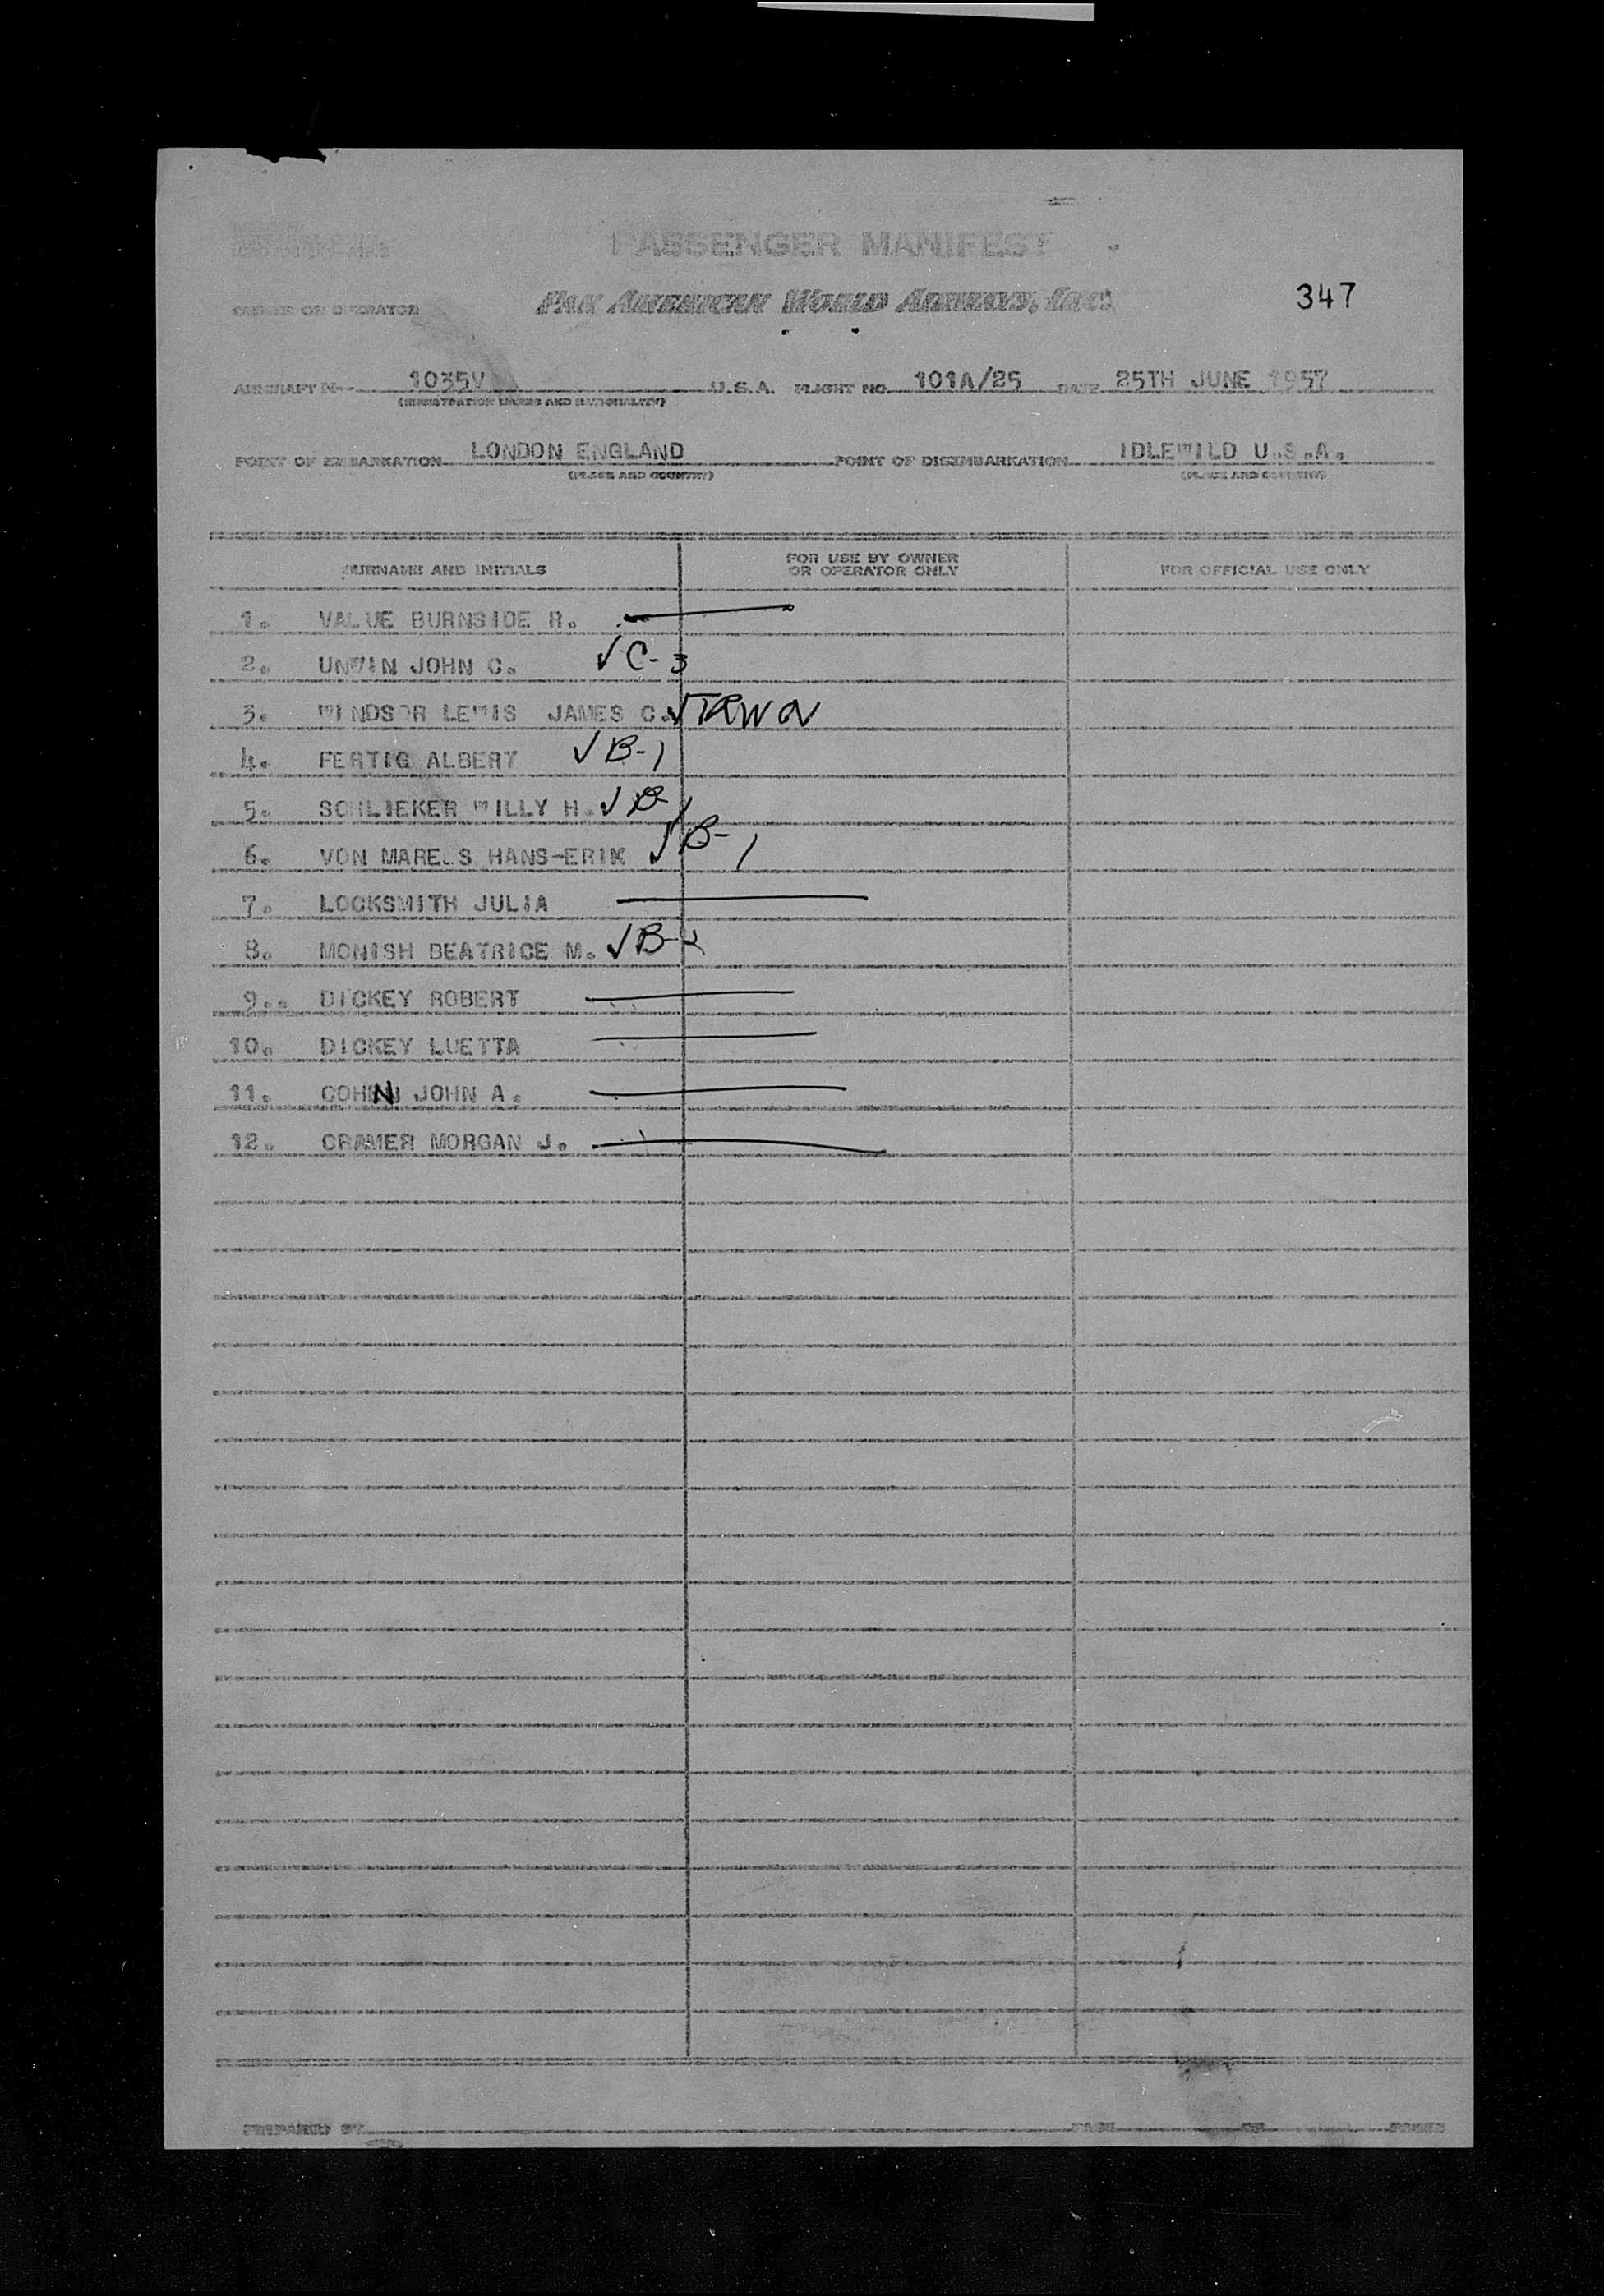 PASSENGER MANIFEST
OWNER OR OPERATOR PAN AMERICAN WORLD AIRWAYS, INC. 347
AIRCRAFT N 1035V U.S.A. FLIGHT NO. 101A/25 DATE 25TH JUNE 1957
(REGISTRATION MARKS AND NATIONALITY)
POINT OF EMBARKATION LONDON ENGLAND POINT OF DISEMBARKATION IDLEWILD U.S.A.
(PLACE AND COUNTRY) (PLACE AND COUNTRY)
SURNAME AND INITIALS FOR USE BY OWNER OR OPERATOR ONLY FOR OFFICIAL USE ONLY
1. VALUE BURNSIDE R.
2. UNWIN JOHN C. √ C-3
3. WINDSOR LEWIS JAMES C. √
4. FERTIG ALBERT √ B-1
5. SCHLIEKER WILLY H. √ B-1
6. VON HANS-ERIK √ B-1
7. LOCKSMITH JULIA
8. MONISH BEATRICE M. √ B-2
9.. DICKEY ROBERT
10. DICKEY LUETTA
11. JOHN A.
12. CRAMER MORGAN J.
PREPARED BY PAGE OF PAGES